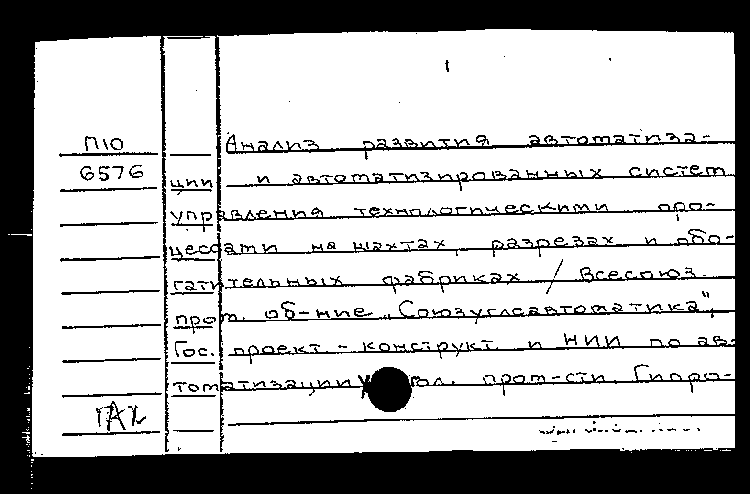 П10 Анализ развития автоматиза-
6576 ции и автоматизированных систем
управления технологическими про-
цессами на шахтах, разрезах и обо-
гатительных фабриках / Всесоюз.
пром. об-ние „Союзуглеавтоматика",
Гос. проект.-конструкт. и НИИ по ав-
томатизации угол. пром-сти. Гипро-